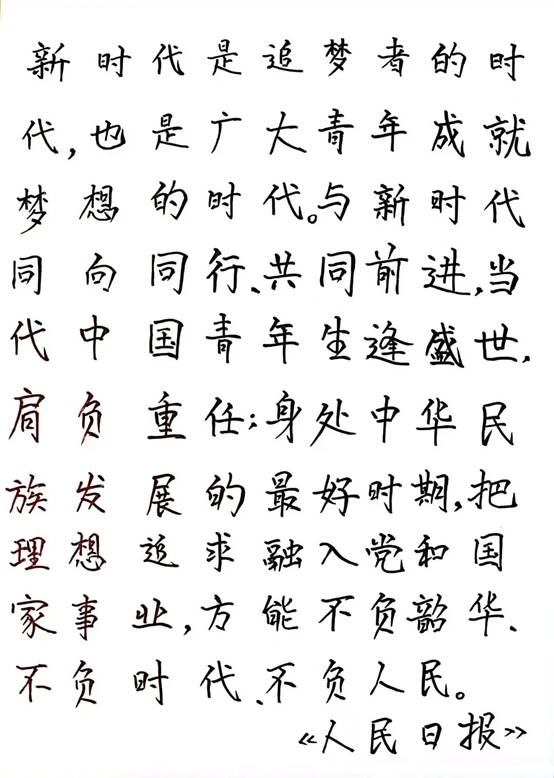 新时代是追梦者的时
代,也是广大青年成就
梦想的时代。与新时代
同向同行、共同前进,当
代中国青年生逢盛世,
肩负重任;身处中华民
族发展的最好时期,把
理想追求融入党和国
家事业,方能不负韶华、
不负时代、不负人民。
《人民日报》